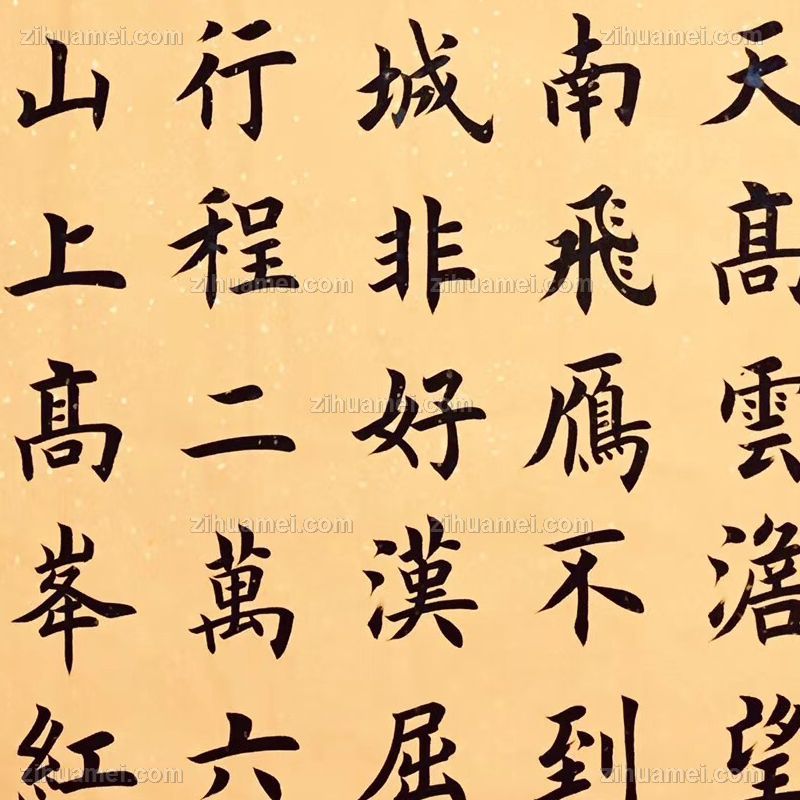 天髙雲澹望
南飛鴈不到
城非好漢屈
行程二萬六
山上髙峯紅
zihuamei.com zihuamei.com zihuamei.com
zihuamei.com zihuamei.com
zihuamei.com
zihuamei.com zihuamei.com
zihuamei.com zihuamei.com zihuamei.com